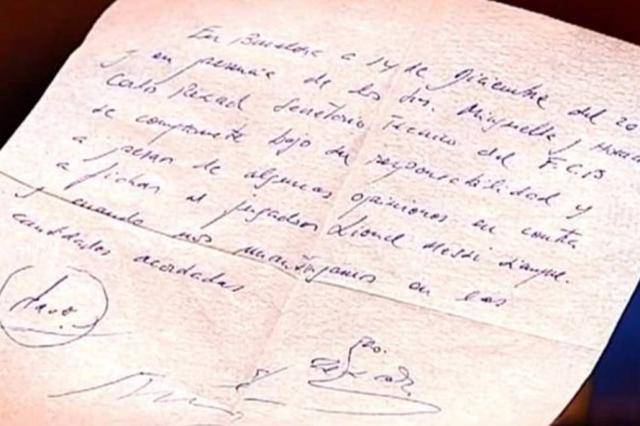 En Barcelona a 14 de Diciembre del 20
y en presencia de los Srs. Minguella y Hora
Carlos Rexach Secretario Técnico del F.C.B
se compromete bajo su responsabilidad y
a pesar de algunas opiniones en contra
a fichar al jugador Lionel Messi siempre
y cuando nos mantengamos en las
cantidades acordadas